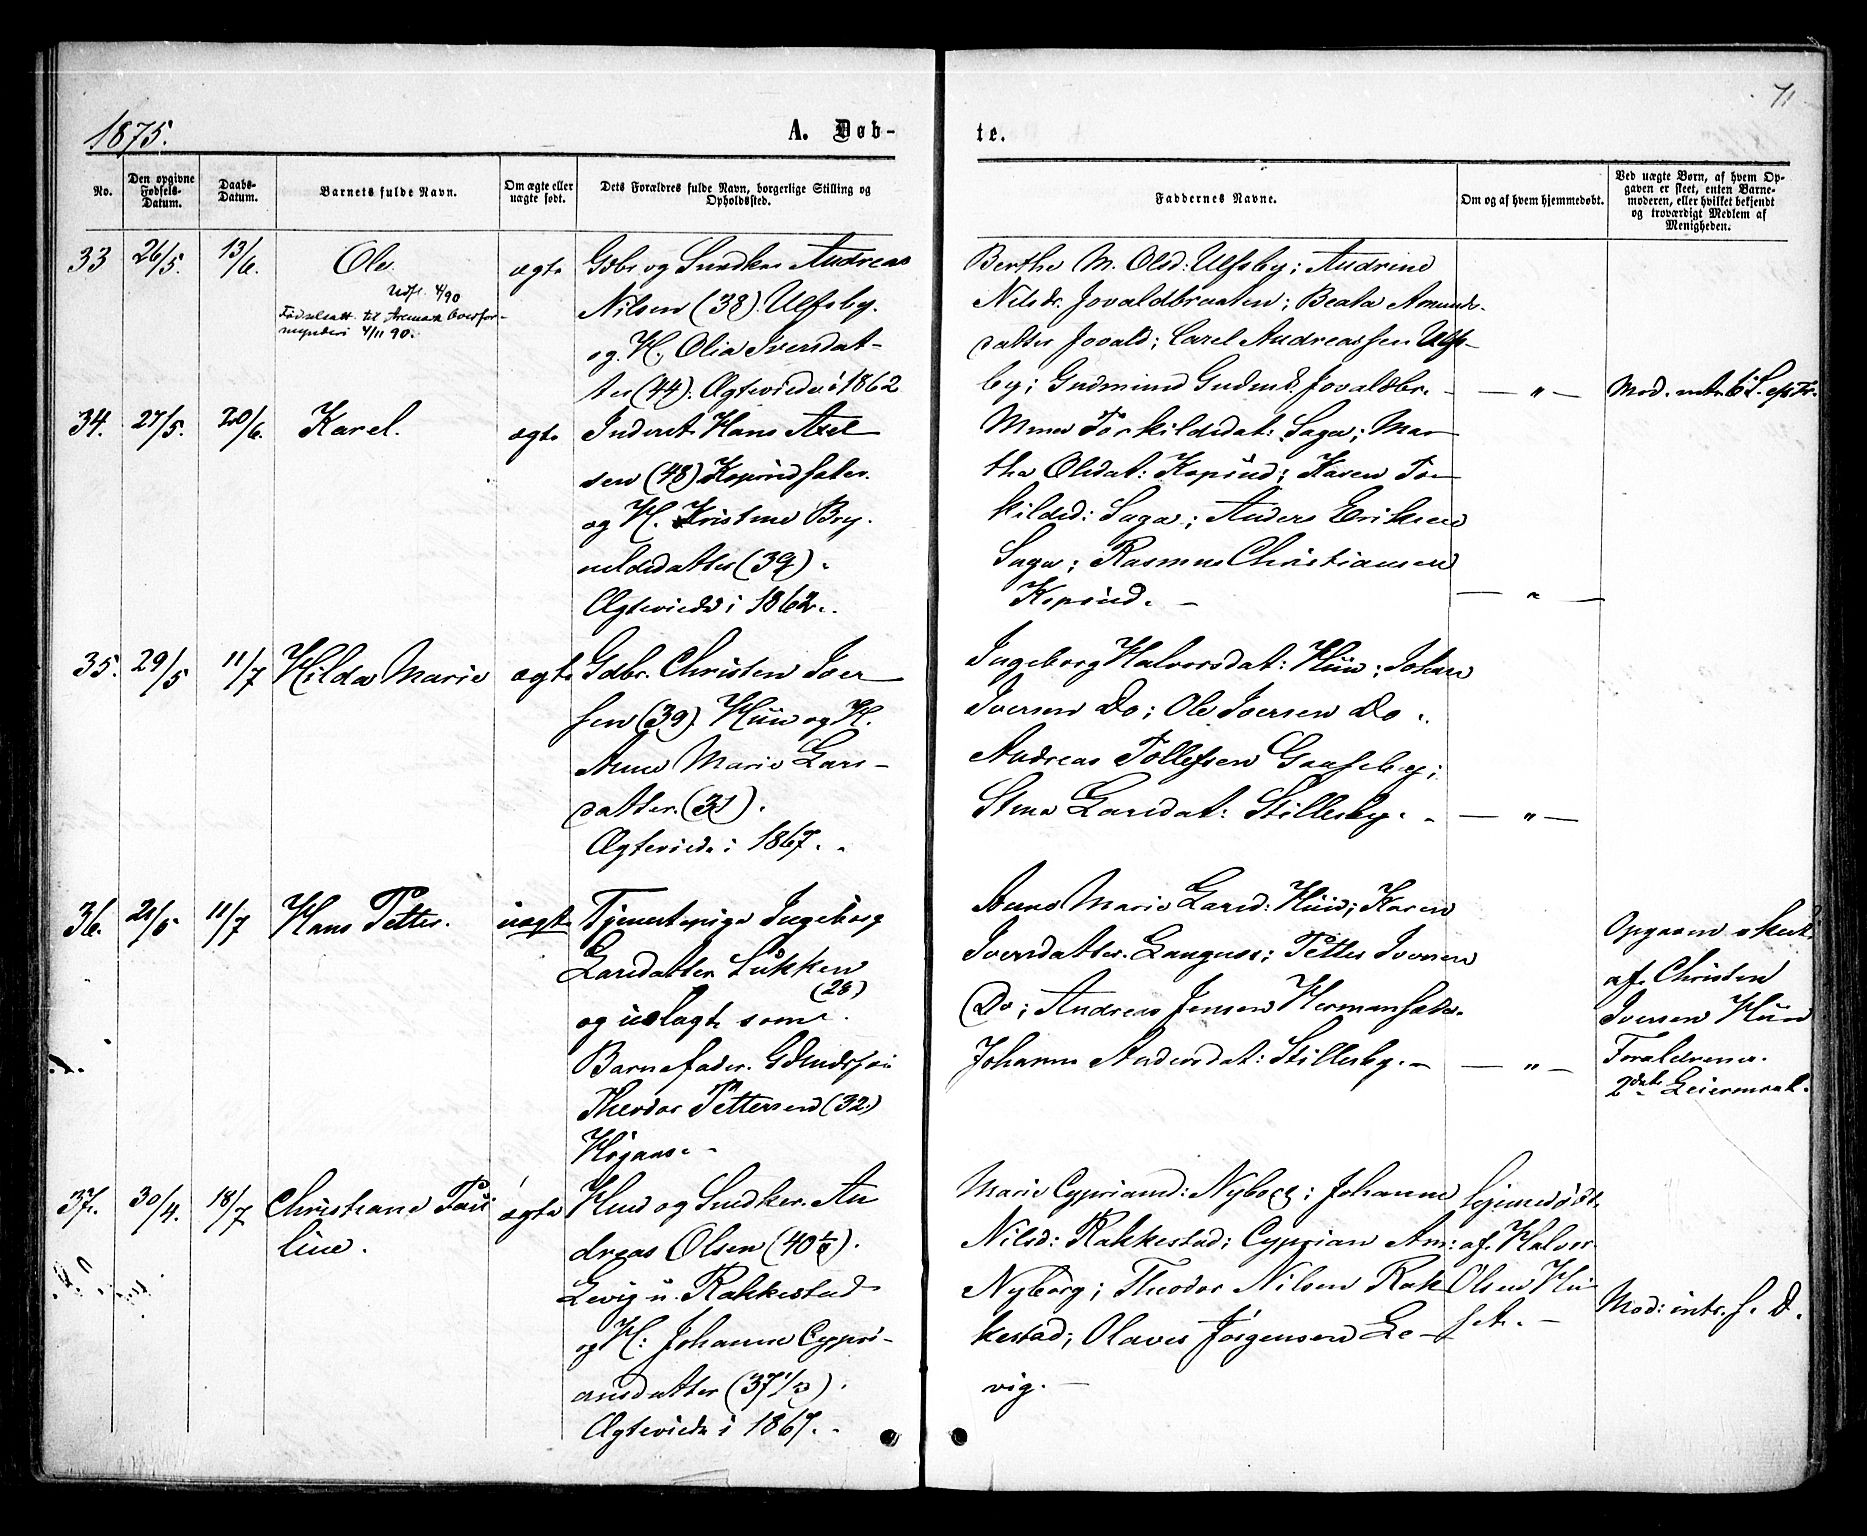 71
1875.
A. Døb-
te.
No.
Den opgivne Fødsels-Datum.
Daabs-Datum.
Barnets fulde Navn.
Om ægte eller uægte født.
Dets Forældres fulde Navn, borgerlige Stilling og Opholdssted.
Faddernes Navne.
Om og af hvem hjemmedøbt.
Ved uægte Børn, af hvem Opgaven er skeet, enten Barnemoderen, eller hvilket bekjendt og troværdigt Medlem af Menigheden.
33 26/5. 13/6. Ole ægte
Udf. 4/90
til Aremark Overfor-
mynderi 4/11 90.
Gdbr og Snedker Andreas
Nilsen (38). Ulfsby.
og H. Olia Iversdat-
ter (44). Ægteviede i 1862
Berthe M. Olsd: Ulfsby; Andrine
Nilsdr. Jovaldbraaten; Beata Amunds-
datter Jovald; Carel Andreassen Ulfs-
by; Gudmund Gudmd. Jovaldbr. -
— " —
34. 27/5. 20/6. Karel. ægte
Inderst Hans Axel
sen (48) Kopsindsæter.
og H. Kristine Bry-
nildsdatter (39).
Ægteviede i 1862.
Mina Torkildsdat: Saga; Mar
tha Olsdat: Kopsind; Karen Tor
kildsd: Saga; Anders Eriksen
Saga; Rasmus Christiansen
Kopsind. —
— " —
35. 29/5 11/7 Hilda Marie ægte
Gdbr. Christen Iver
sen (39). Hün og H.
Anne Marie Lars-
datter. (31).
Ægteviede i 1867.
Ingeborg Halvorsdat: Hün; Johan
Iversen Do; Ole Iversen Do.
Andreas Tollefsen Gaaseby;
Stina Larsdat: Stillesby.
— " —
36. 21/5 11/7 Hans Petter. uægte
Tjenestepige Ingeborg
Larsdatter Løkken
(28)
og udlagt som
Barnefader. Gdmdssøn
Theodor Pettersen (32.)
Anne Marie Larsd: Hün; Karen
Iversdatter. Languss; Petter Iversen
Do; Andreas Jensen Hermansæter.
Johanne Andersdat: Stillesby. -
— " —
Opgaven skeet
af Christen
Iversen Hün
Forældrenes
2det Leiermaal.
37. 30/4. 18/7 Christiane Pau
line. ægte
Husd og Snedker. An
dreas Olsen (40½).
Levig u. Rakkestad
og H: Johanne Cypri-
ansdatter (37½).
Ægteviede i 1867.
Marie Cypriand: Nyborg; Johanne
Nilsd: Rakkestad; Cyprian Am:
Nyborg; Theodor Nilsen Rak
kestad; Olaves Jörgensen Le-
vig. —
hjemedøbt.
af Halvor
Olsen Hü
set. —
Mod: intr. f. D.